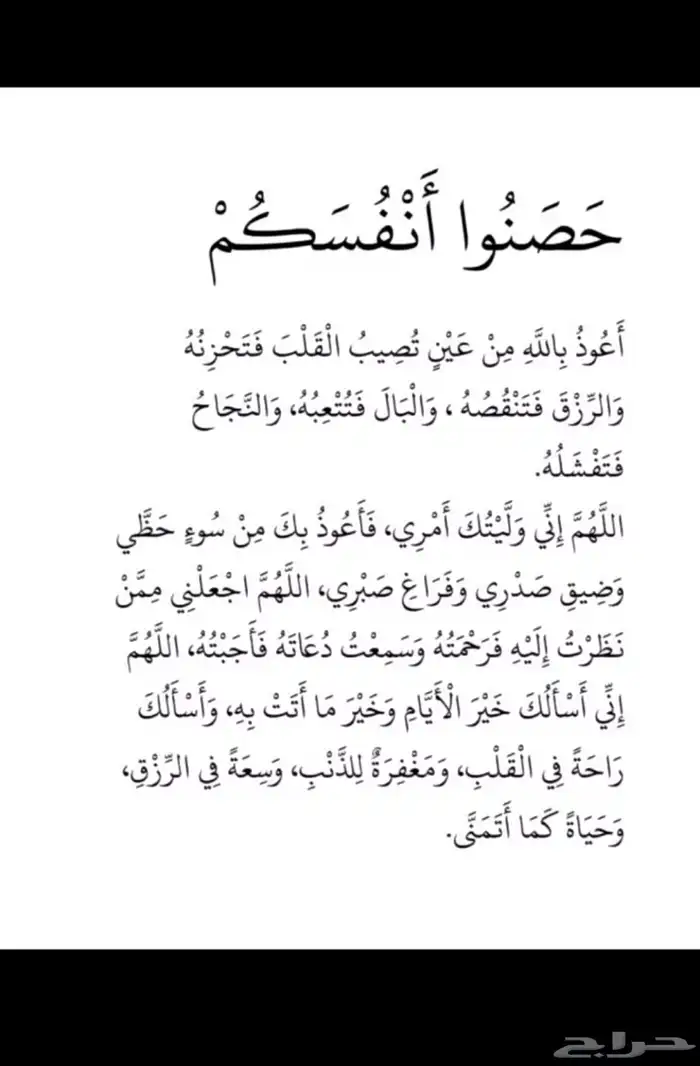 حَصَنُوا أَنْفُسَكُمْ
أَعُوذُ بِاللَّهِ مِنْ عَيْنٍ تُصِيبُ الْقَلْبَ فَتَحْزِنُهُ
وَالرِّزْقَ فَتَنْقُصُهُ ، وَالْبَالَ فَتُتْعِبُهُ، وَالنَّجَاحُ
فَتَفْشَلُهُ.
اللَّهُمَّ إِنِّي وَلَّيْتُكَ أَمْرِي، فَأَعُوذُ بِكَ مِنْ سُوءٍ حَظَّي
وَضِيقِ صَدْرِي وَفَرَاغِ صَبْرِي، اللَّهُمَّ اجْعَلْنِي مِمَّنْ
نَظَرْتُ إِلَيْهِ فَرَحْمَتُهُ وَسَمِعْتُ دُعَاتَهُ فَأَجَبْتُهُ، اللَّهُمَّ
إِنِّي أَسْأَلُكَ خَيْرَ الْأَيَّامِ وَخَيْرَ مَا أَتَتْ بِهِ، وَأَسْأَلُكَ
رَاحَةً فِي الْقَلْبِ، وَمَغْفِرَةٌ لِلذَّنْبِ، وَسِعَةً فِي الرِّزْقِ،
وَحَيَاةً كَمَا أَتَمَنَّى.
حراج